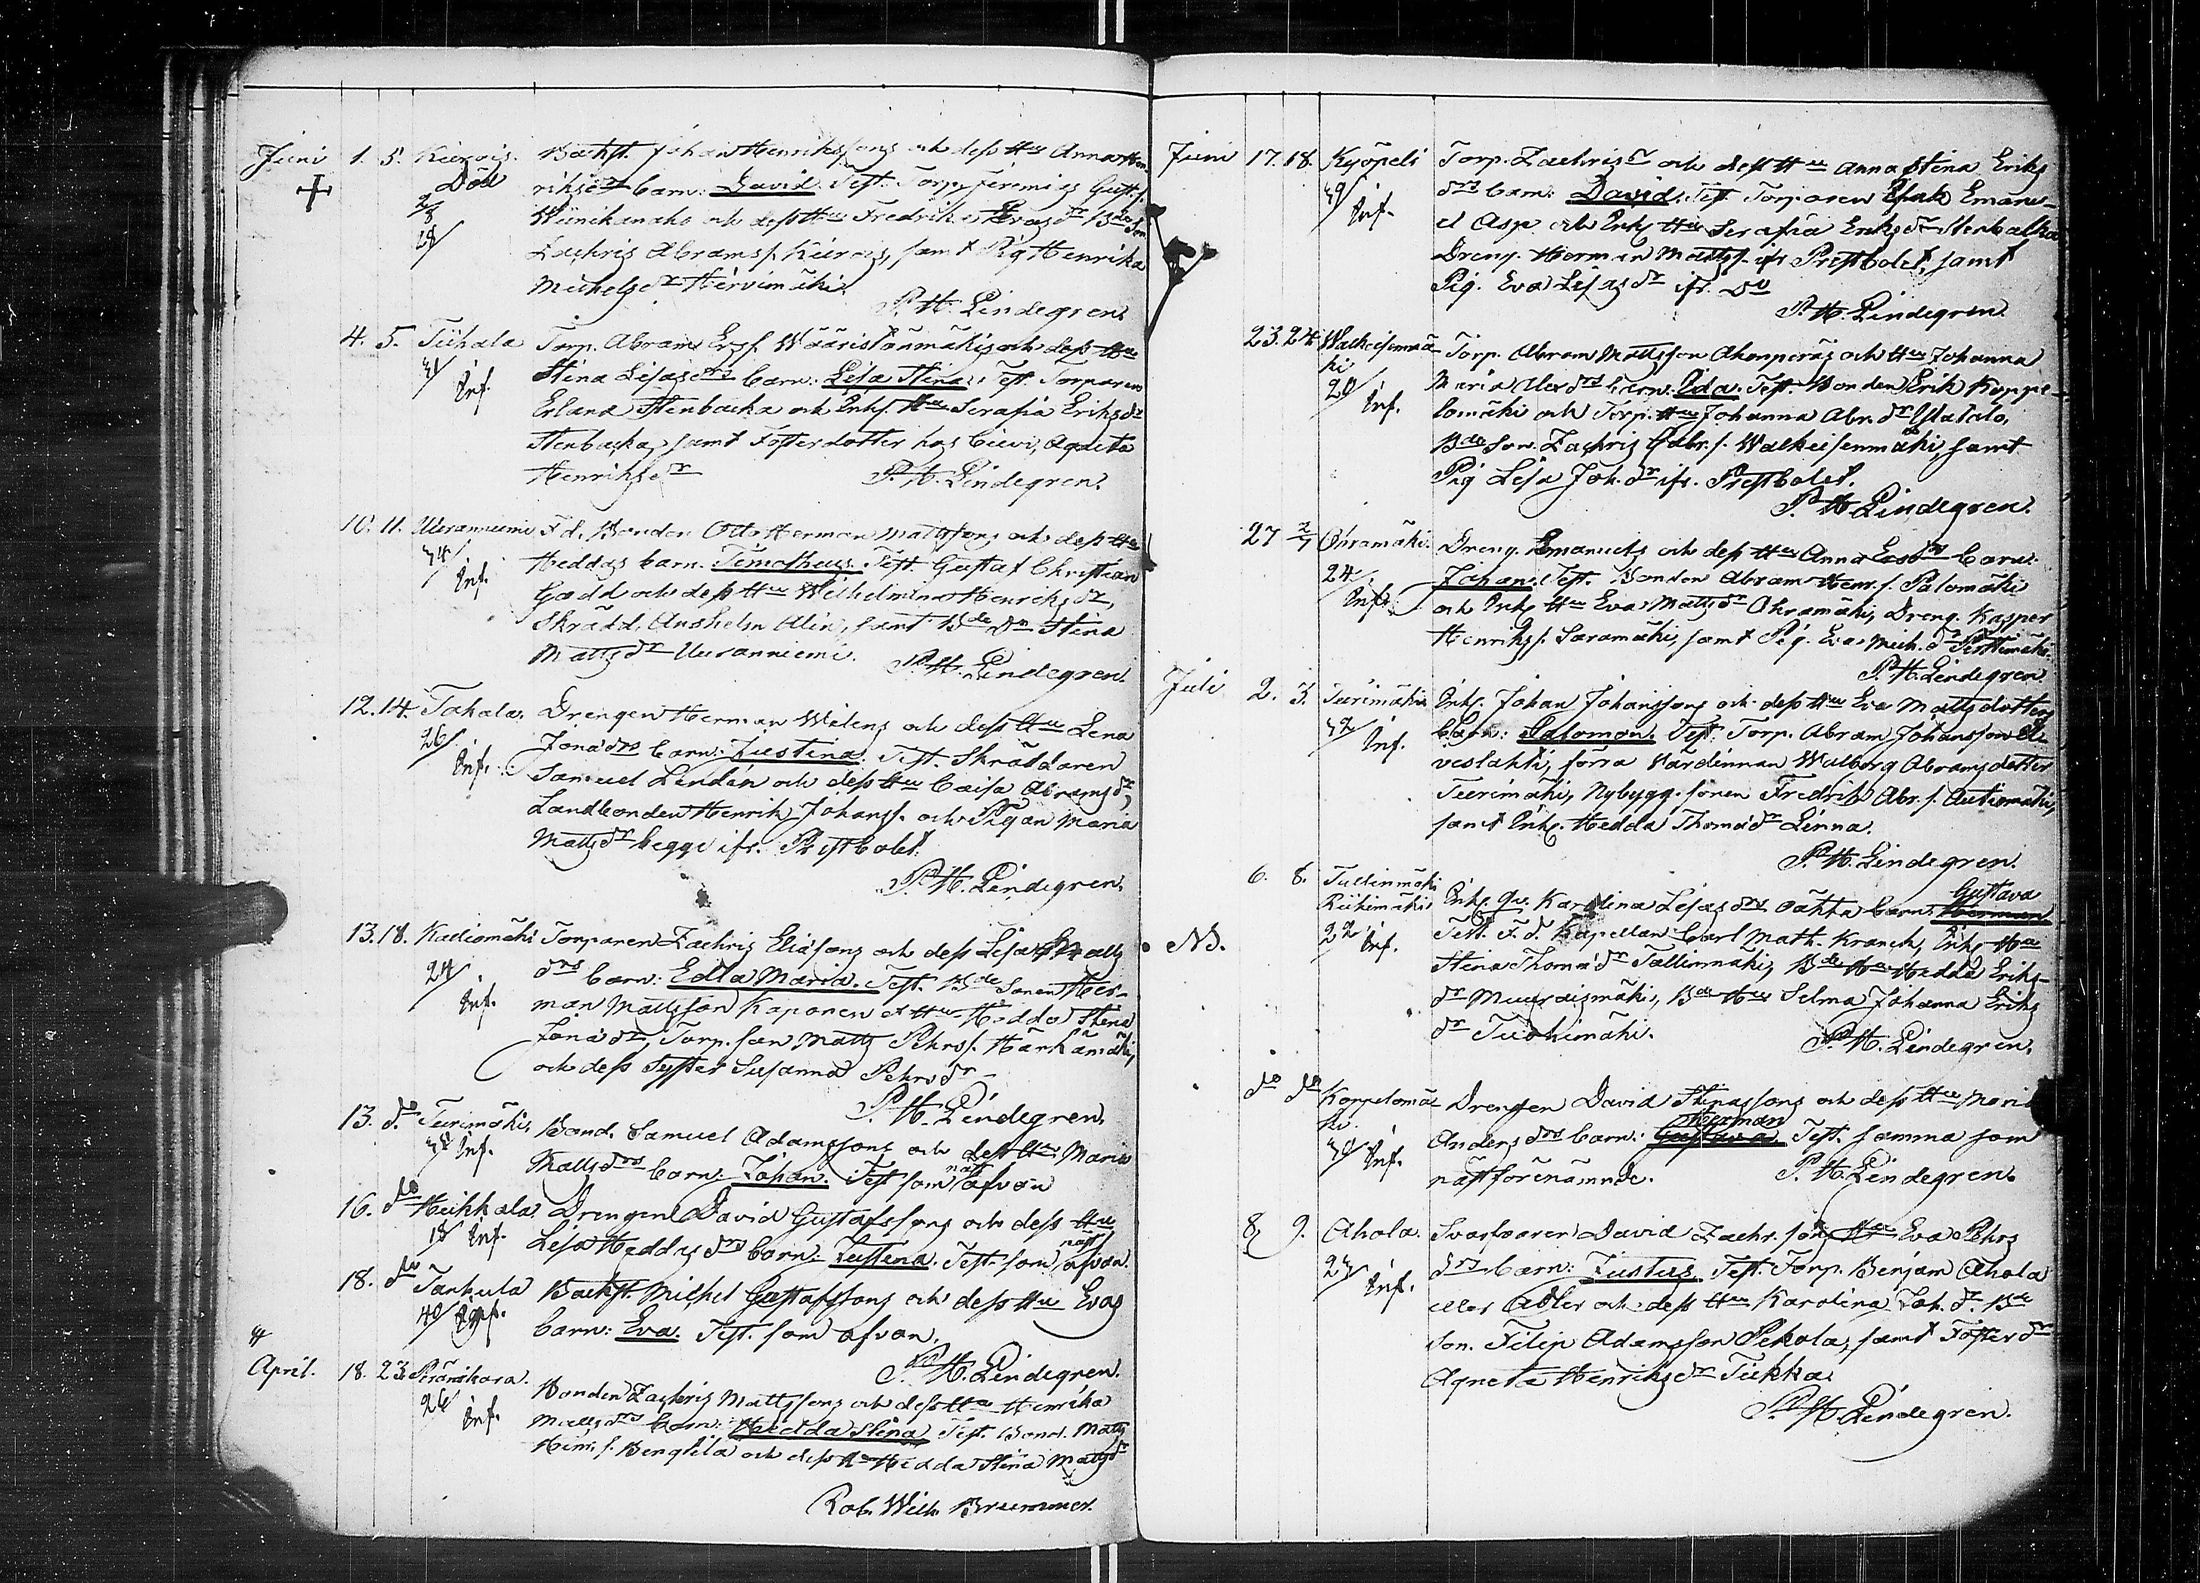 Juni 1. 5. Backst. Johan Henrikssons och dess Hu Anna Hen
Död riksdrs barn: David. Test. Torp. Jeremias Gust.s.
och dess Hu Fredrika Evasdr Bde Son
Zachris Abramss. samt Pig. Henrika
Michelsdr Hirvimäki.
P. H. Lindegren.
4. 5. Tiihala Torp. Abram Ersf. Wäåristönmäkis och dess Hu
31/ Inf. Stina Lisasdrs barn: Lisa Stina. Test. Torparen
Erland Stenbacka och Inh. Hu Serafia Eriksdr
Stenbacka, samt Fosterdotter hos Ciewi, Agneta
Henriksdr P. H. Lindegren.
10. 11. Uuranniemi F. d. Bonden Otto Herman Mattssons och dess Hu
34/ Inf. Heddas barn. Timotheus. Test. Gustaf Christian
Gadd och dess Hu Wilhelmina Henriksdr,
Skrädd. Anshelm Alin, samt Bde Dr Stina
Mattsdr Uuranniemi. P. H. Lindegren.
12. 14. Takala. Drengen Herman Wilens och dess Hu Lena
26/ Inf. Jonædrs barn: Justina. Test. Skräddaren
Samuel Lindén och dess Hu Caisa Abramsdr,
Landbonden Henrik Johanss. och Pigan Maria
Mattsdr begge ifr. Prestbolet.
P. H. Lindegren.
13. 18. Kaliomäki Torparen Zachris Eliassons och dess Lisa Matts
24/ Inf. drs barn: Edla Maria. Test. Bde Sonen Her-
man Mattsson Kaponen et Hu Hedda Stina
Jonædr, Torp. son Matts Pehrss. Härkämäki,
och dess Syster Susanna Pehrsdr
P. H. Lindegren.
13. do Tuurimäki, Bond. Samuel Adamssons och dess Hu Maria
38/ Inf. Mattsdrs barn: Johan. Test som näst ofvan
16. do Heikkala Drengen David Gustafssons och dess Hu
18/ Inf. Lisa Heddasdrs barn: Justina. Test. som näst ofvan.
18. do Tankula Backst. Michel Gustafssons och dess Hu Evas
40/ Inf. barn: Eva. Test. som ofvan.
P. H. Lindegren.
April. 18. 23. Pränikara. Bonden Zachris Mattssons och dess Hu Henrika
26/ Inf. Mattsdrs barn: Hedda Stina Test. Bond. Matts
Henr. s. Bengtila och dess Hu Hedda Stina Mattsdr
Rob. Wilh. Brummer.
Juni 17. 18. Kyöpeli Torp. Zachriss och dess Hu Anna Stina Eriks
39/ Inf. drs barn: David. Test. Torparen Isak Emanu-
el Asp och Inh. Hu Serafia Eriksdr Stenbacka
Dreng. Herman Mattss. ifr. Prestbolet, samt
Pig. Eva Lisasdr ifr. do
P. H. Lindegren.
23. 24. Walkeisenmä- Torp. Abram Mattsson Ahonperäs och Hu Johanna
ki Maria Alex.drs barn: Ida. Test. Bonden Erik Koppe-
20/ Inf. lomäki och Torp. Hu Johanna Abr.dr Ylätalo,
Bde Son. Zachris Gabr. s. Walkeisenmäki, samt
Pig. Lisa Joh. dr ifr. Prestbolet.
P. H. Lindegren.
27 2/7 Ohramäki. Dreng. Emanuels och dess Hu Anna drs barn:
24/ Inf. Johan. Test. Bonden Abram Henr. s. Palomäki
och Inh. Hu Eva Mattsdr Ohramäki, Dreng. Kasper
Henrikss. Saramäki, samt Pig. Eva Mich. dr
P. H. Lindegren.
Juli 2. 3. Tuurimäki Inh. Johan Johanssons och dess Hu Eva Mattsdotters
32/ Inf. barn: Salomon. Test. Torp. Abram Johansson Al-
vestahti, förra Värdinnan Walborg Abramsdotter
Tuurimäki, Nybygg. sonen Fredrik Abr. s. Autiomäki,
samt Inh. Hedda Thomædr Linna.
P. H. Lindegren.
6. 8. Tullinmäki Gustava
Riihimäki Inh. Qv. Karolina Lisasdrs oäkta barn: Herman
NB. 22/ Inf. Test. F. d. Kapellan Carl Math. Kranck, Inh. Hu
Stina Thomædr Tallinmäki, Bde Hu Hedda Eriks-
dr Muuraismäki, Bde Hu Selma Johanna Eriks
dr Tuohimäki. P. H. Lindegren.
do do Koppelomä- Drengen David Stinassons och dess Hu Maria
ki. Herman
30/ Inf. Andersdrs barn: Gustava. Test. samma som
näst förenämnde. P. H. Lindegren.
8 9. Ahola. Svarfvaren David Zachr. sons Hu Eva Pehrs
27/ Inf. drs barn: Justus. Test. Torp. Benjam Ahola
eller Adler och dess Hu Karolina Joh. dr. Bde
Son. Filip Adamsson Pekola, samt Foster dr
Agneta Henriksdr Tiikka.
P. H. Lindegren.